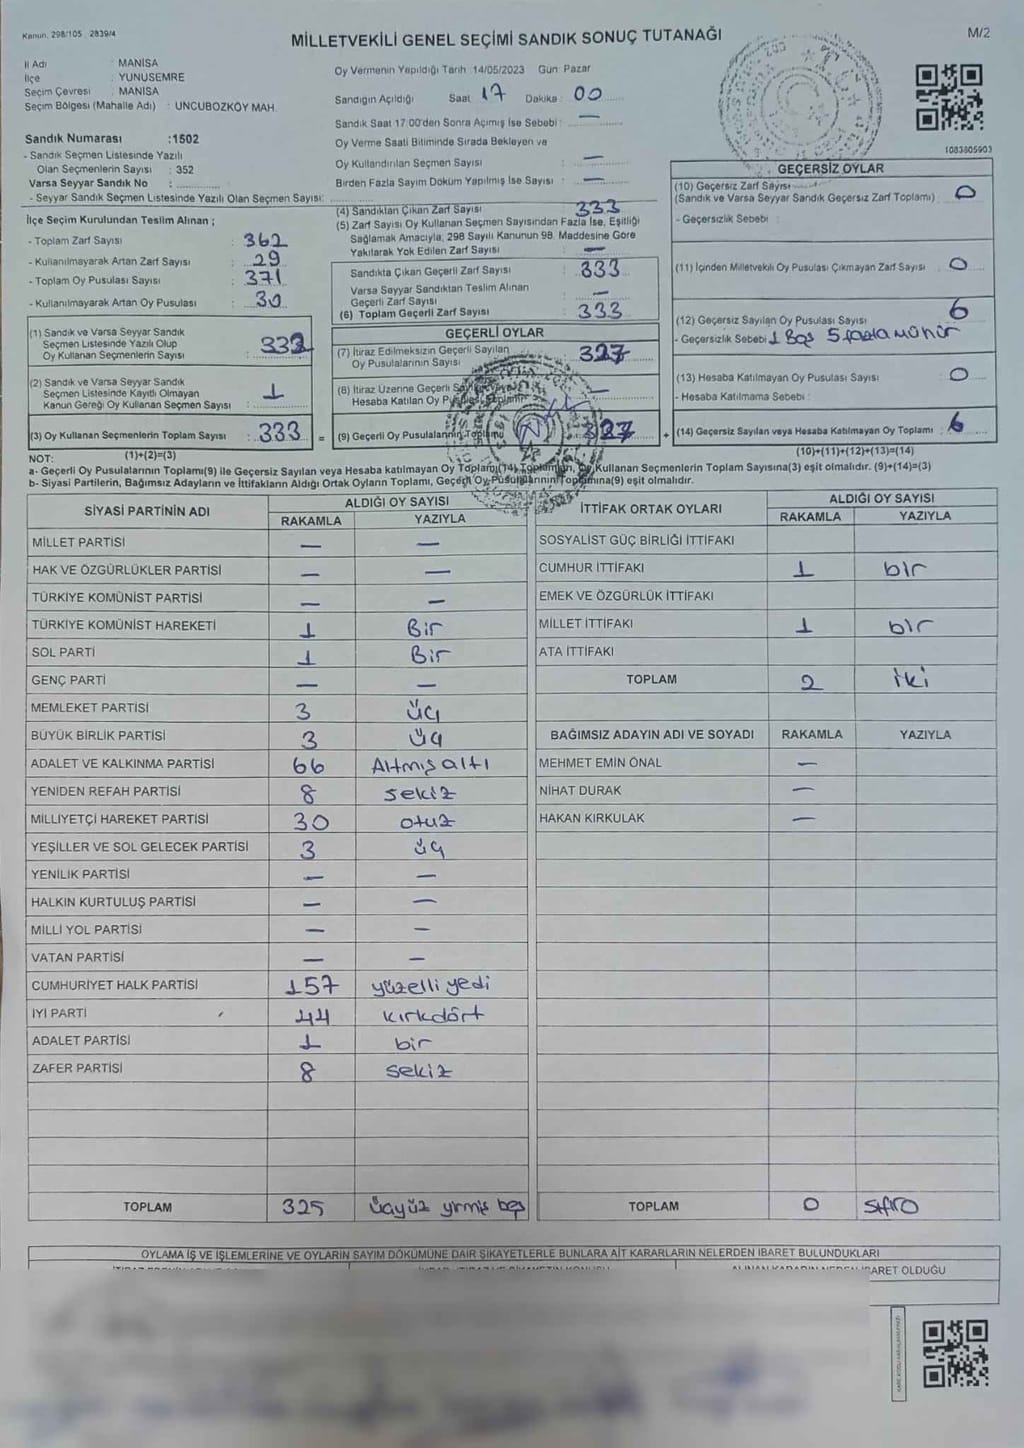 Kanun. 298/105 2839/4
MİLLETVEKİLİ GENEL SEÇİMİ SANDIK SONUÇ TUTANAĞI
M/2
İl Adı : MANİSA
İlçe : YUNUSEMRE
Seçim Çevresi : MANİSA
Seçim Bölgesi (Mahalle Adı) : UNCUBOZKÖY MAH.
Sandık Numarası :1502
- Sandık Seçmen Listesinde Yazılı
Olan Seçmenlerin Sayısı : 352
Varsa Seyyar Sandık No :
- Seyyar Sandık Seçmen Listesinde Yazılı Olan Seçmen Sayısı:
Oy Vermenin Yapıldığı Tarih 14/05/2023 Gün: Pazar
Sandığın Açıldığı Saat 17 Dakika : 00
Sandık Saat 17:00'den Sonra Açılmış İse Sebebi : —
Oy Verme Saati Bitiminde Sırada Bekleyen ve
Oy Kullandırılan Seçmen Sayısı : —
Birden Fazla Sayım Döküm Yapılmış İse Sayısı : —
1083805903
İlçe Seçim Kurulundan Teslim Alınan ;
- Toplam Zarf Sayısı : 362
- Kullanılmayarak Artan Zarf Sayısı : 29
- Toplam Oy Pusulası Sayısı : 371
- Kullanılmayarak Artan Oy Pusulası : 30
(1) Sandık ve Varsa Seyyar Sandık
Seçmen Listesinde Yazılı Olup
Oy Kullanan Seçmenlerin Sayısı : 332
(2) Sandık ve Varsa Seyyar Sandık
Seçmen Listesinde Kayıtlı Olmayan
Kanun Gereği Oy Kullanan Seçmen Sayısı : 1
(3) Oy Kullanan Seçmenlerin Toplam Sayısı : 333 =
(4) Sandıktan Çıkan Zarf Sayısı : 333
(5) Zarf Sayısı Oy Kullanan Seçmen Sayısından Fazla İse, Eşitliği
Sağlamak Amacıyla, 298 Sayılı Kanunun 98. Maddesine Göre
Yakılarak Yok Edilen Zarf Sayısı : —
Sandıkta Çıkan Geçerli Zarf Sayısı : 333
Varsa Seyyar Sandıktan Teslim Alınan
Geçerli Zarf Sayısı : —
(6) Toplam Geçerli Zarf Sayısı : 333
GEÇERLİ OYLAR
(7) İtiraz Edilmeksizin Geçerli Sayılan
Oy Pusulalarının Sayısı : 327
(8) İtiraz Üzerine Geçerli
Hesaba Katılan Oy —
(9) Geçerli Oy Pusulalarının Toplamı 327 +
GEÇERSİZ OYLAR
(10) Geçersiz Zarf Sayısı
(Sandık ve Varsa Seyyar Sandık Geçersiz Zarf Toplamı) : 0
- Geçersizlik Sebebi :
(11) İçinden Milletvekili Oy Pusulası Çıkmayan Zarf Sayısı : 0
(12) Geçersiz Sayılan Oy Pusulası Sayısı : 6
- Geçersizlik Sebebi 1 Boş 5 fazla mühür
(13) Hesaba Katılmayan Oy Pusulası Sayısı : 0
- Hesaba Katılmama Sebebi :
(14) Geçersiz Sayılan veya Hesaba Katılmayan Oy Toplamı : 6
NOT: (1)+(2)=(3) (10)+(11)+(12)+(13)=(14)
a- Geçerli Oy Pusulalarının Toplamı(9) ile Geçersiz Sayılan veya Hesaba katılmayan Oy Toplamı(14) Toplamları, Oy Kullanan Seçmenlerin Toplam Sayısına(3) eşit olmalıdır. (9)+(14)=(3)
b- Siyasi Partilerin, Bağımsız Adayların ve İttifakların Aldığı Ortak Oyların Toplamı, Geçerli Oy Pusulalarının Toplamına(9) eşit olmalıdır.
SİYASİ PARTİNİN ADI ALDIĞI OY SAYISI
RAKAMLA YAZIYLA
MİLLET PARTİSİ — —
HAK VE ÖZGÜRLÜKLER PARTİSİ — —
TÜRKİYE KOMÜNİST PARTİSİ — —
TÜRKİYE KOMÜNİST HAREKETİ 1 Bir
SOL PARTİ 1 Bir
GENÇ PARTİ — —
MEMLEKET PARTİSİ 3 üç
BÜYÜK BİRLİK PARTİSİ 3 üç
ADALET VE KALKINMA PARTİSİ 66 Altmış altı
YENİDEN REFAH PARTİSİ 8 sekiz
MİLLİYETÇİ HAREKET PARTİSİ 30 otuz
YEŞİLLER VE SOL GELECEK PARTİSİ 3 üç
YENİLİK PARTİSİ — —
HALKIN KURTULUŞ PARTİSİ — —
MİLLİ YOL PARTİSİ — —
VATAN PARTİSİ — —
CUMHURİYET HALK PARTİSİ 157 yüzelli yedi
İYİ PARTİ 44 kırkdört
ADALET PARTİSİ 1 bir
ZAFER PARTİSİ 8 sekiz
TOPLAM 325 üçyüz yirmi beş
İTTİFAK ORTAK OYLARI ALDIĞI OY SAYISI
RAKAMLA YAZIYLA
SOSYALİST GÜÇ BİRLİĞİ İTTİFAKI
CUMHUR İTTİFAKI 1 bir
EMEK VE ÖZGÜRLÜK İTTİFAKI
MİLLET İTTİFAKI 1 bir
ATA İTTİFAKI
TOPLAM 2 iki
BAĞIMSIZ ADAYIN ADI VE SOYADI RAKAMLA YAZIYLA
MEHMET EMİN ÖNAL —
NİHAT DURAK —
HAKAN KIRKULAK —
TOPLAM 0 sıfır
OYLAMA İŞ VE İŞLEMLERİNE VE OYLARIN SAYIM DÖKÜMÜNE DAİR ŞİKAYETLERLE BUNLARA AİT KARARLARIN NELERDEN İBARET BULUNDUKLARI
ALINAN KARARIN NEDEN İBARET OLDUĞU